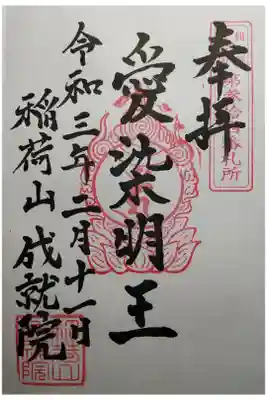 奉拝
愛染明王
令和三年二月十一日
稲荷山成就院